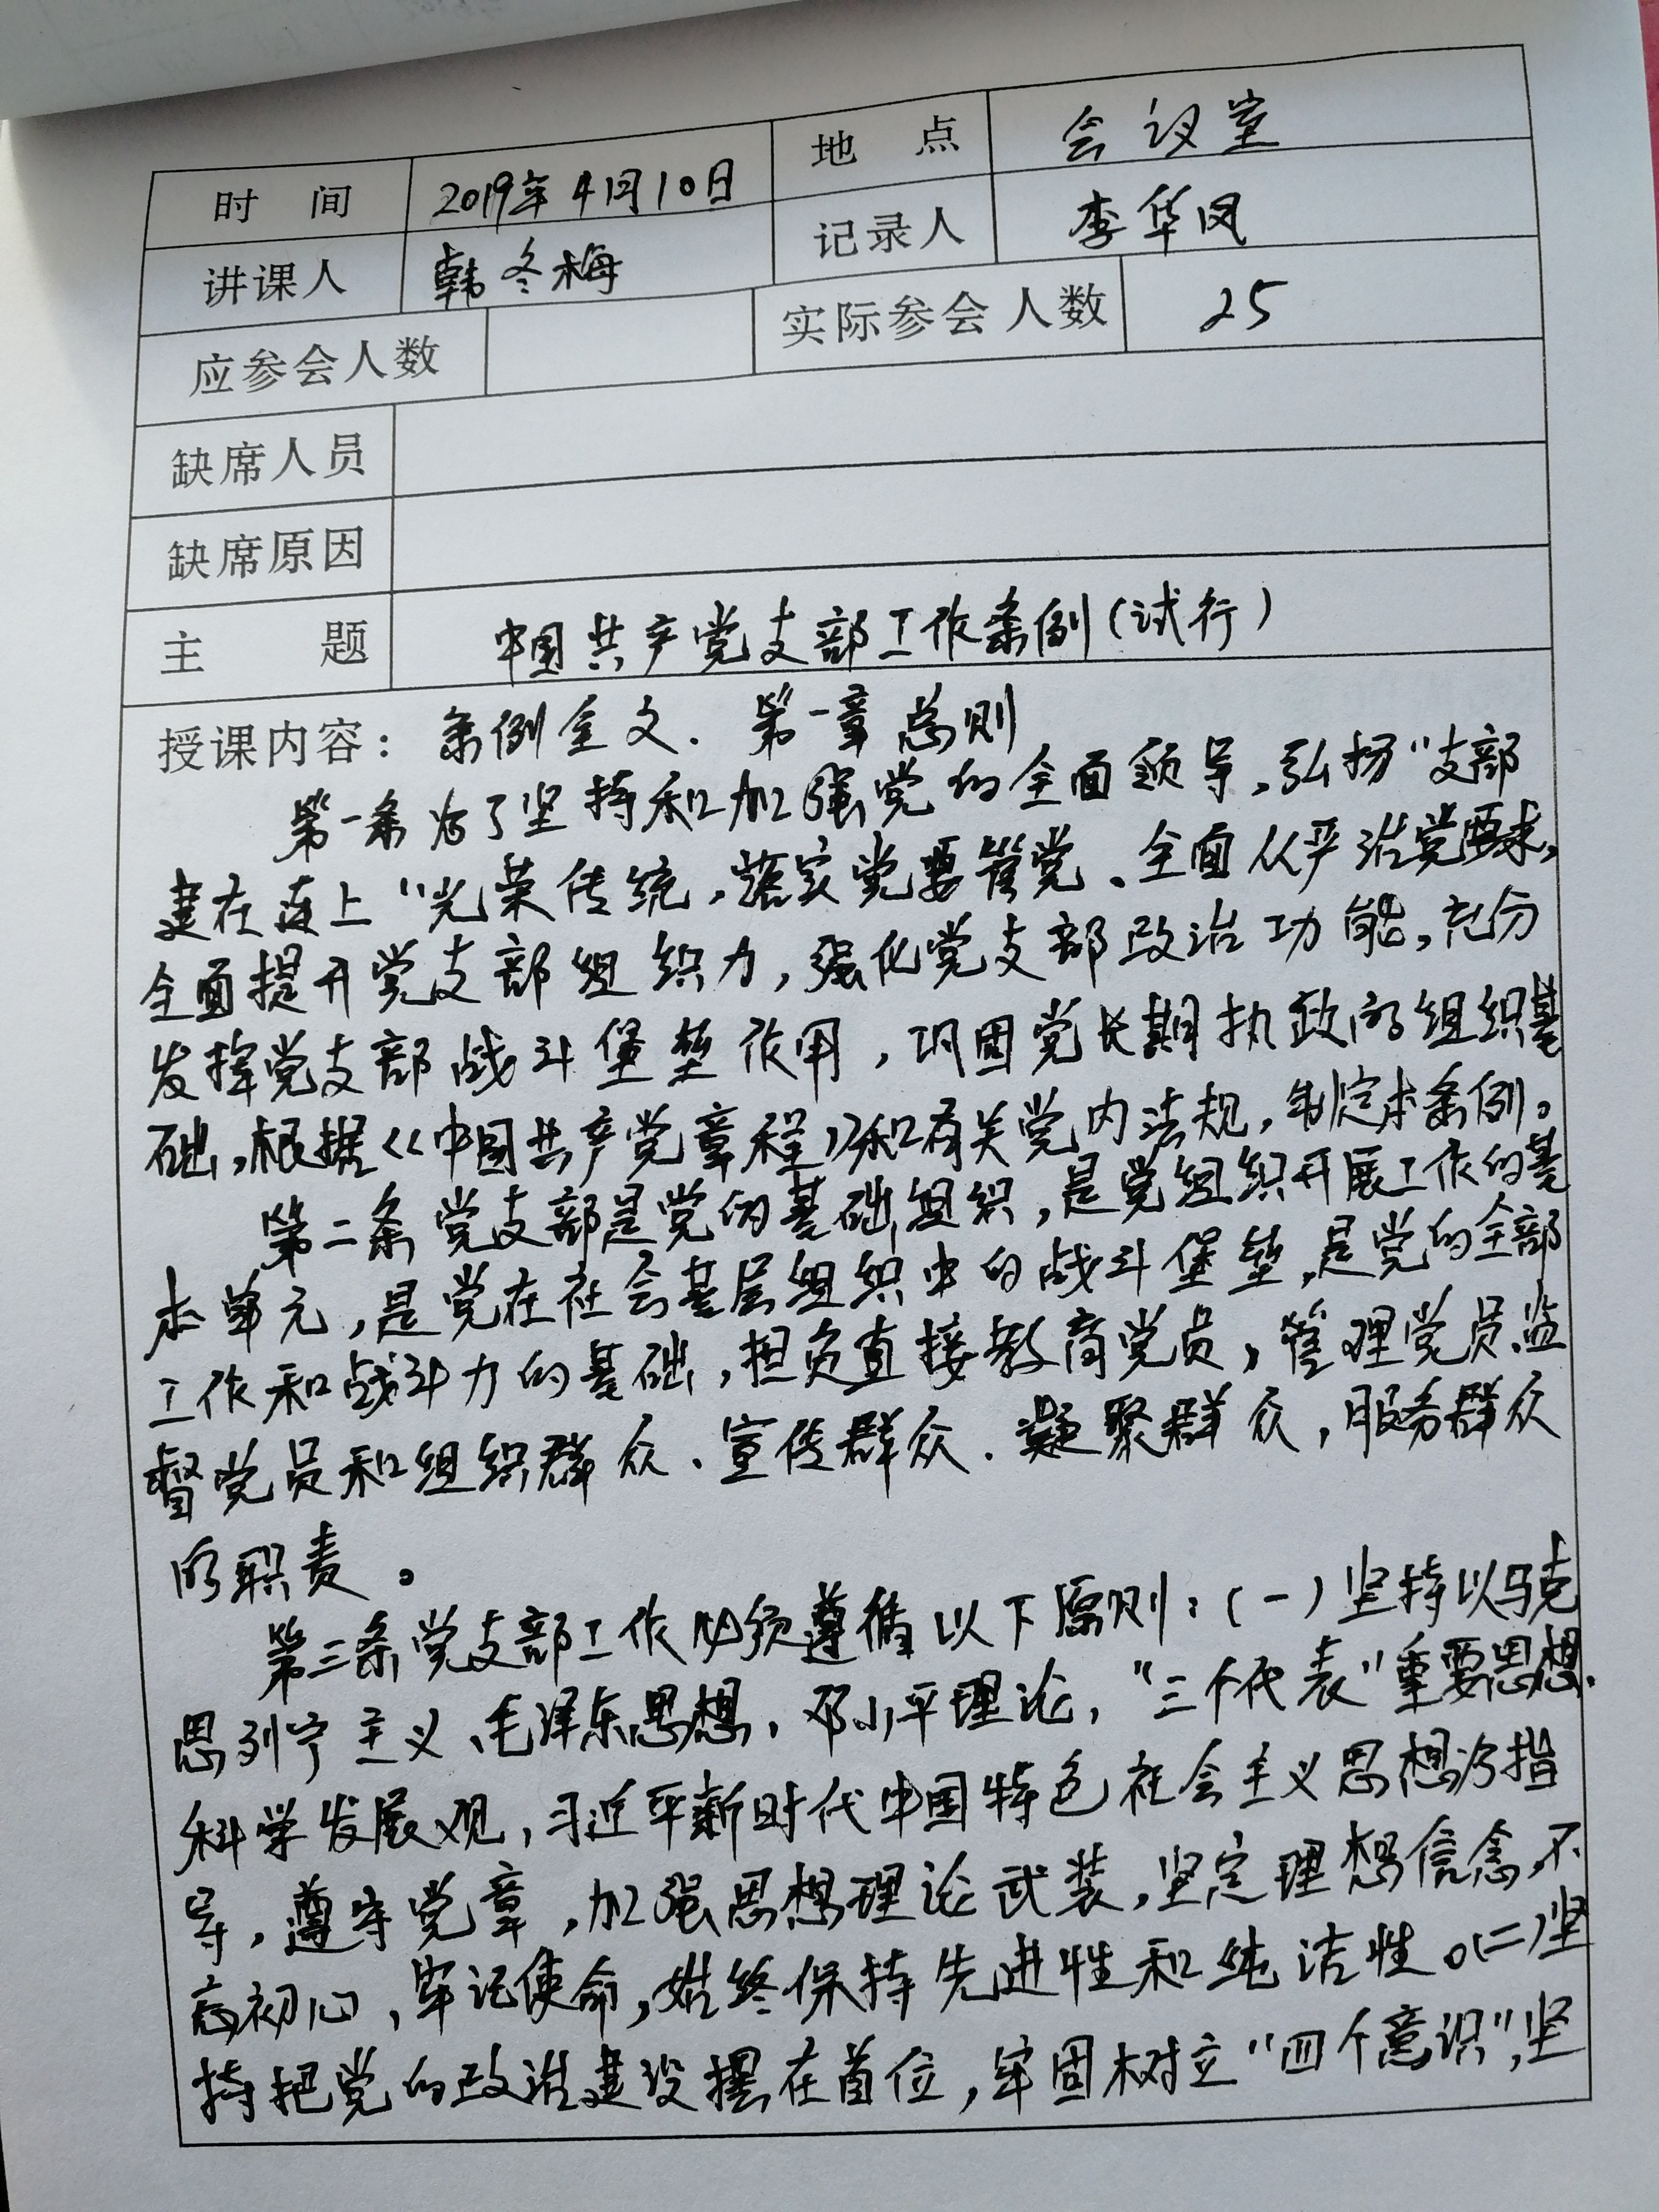 时 间 2019年4月10日 地 点 会议室
讲课人 韩冬梅 记录人 李华凤
应参会人数 实际参会人数 25
缺席人员
缺席原因
主 题 中国共产党支部工作条例(试行)
授课内容: 条例全文. 第一章 总则
第一条 为了坚持和加强党的全面领导,弘扬"支部
建在连上"光荣传统,落实党要管党、全面从严治党要求,
全面提升党支部组织力,强化党支部政治功能,充分
发挥党支部战斗堡垒作用,巩固党长期执政的组织基
础,根据《中国共产党章程》和有关党内法规,制定本条例。
第二条 党支部是党的基础组织,是党组织开展工作的基
本单元,是党在社会基层组织中的战斗堡垒,是党的全部
工作和战斗力的基础,担负直接教育党员,管理党员、监
督党员和组织群众、宣传群众、凝聚群众,服务群众
的职责。
第三条 党支部工作必须遵循以下原则:(一)坚持以马克
思列宁主义、毛泽东思想,邓小平理论,"三个代表"重要思想、
科学发展观,习近平新时代中国特色社会主义思想为指
导,遵守党章,加强思想理论武装,坚定理想信念,不
忘初心,牢记使命,始终保持先进性和纯洁性。(二)坚
持把党的政治建设摆在首位,牢固树立"四个意识",坚